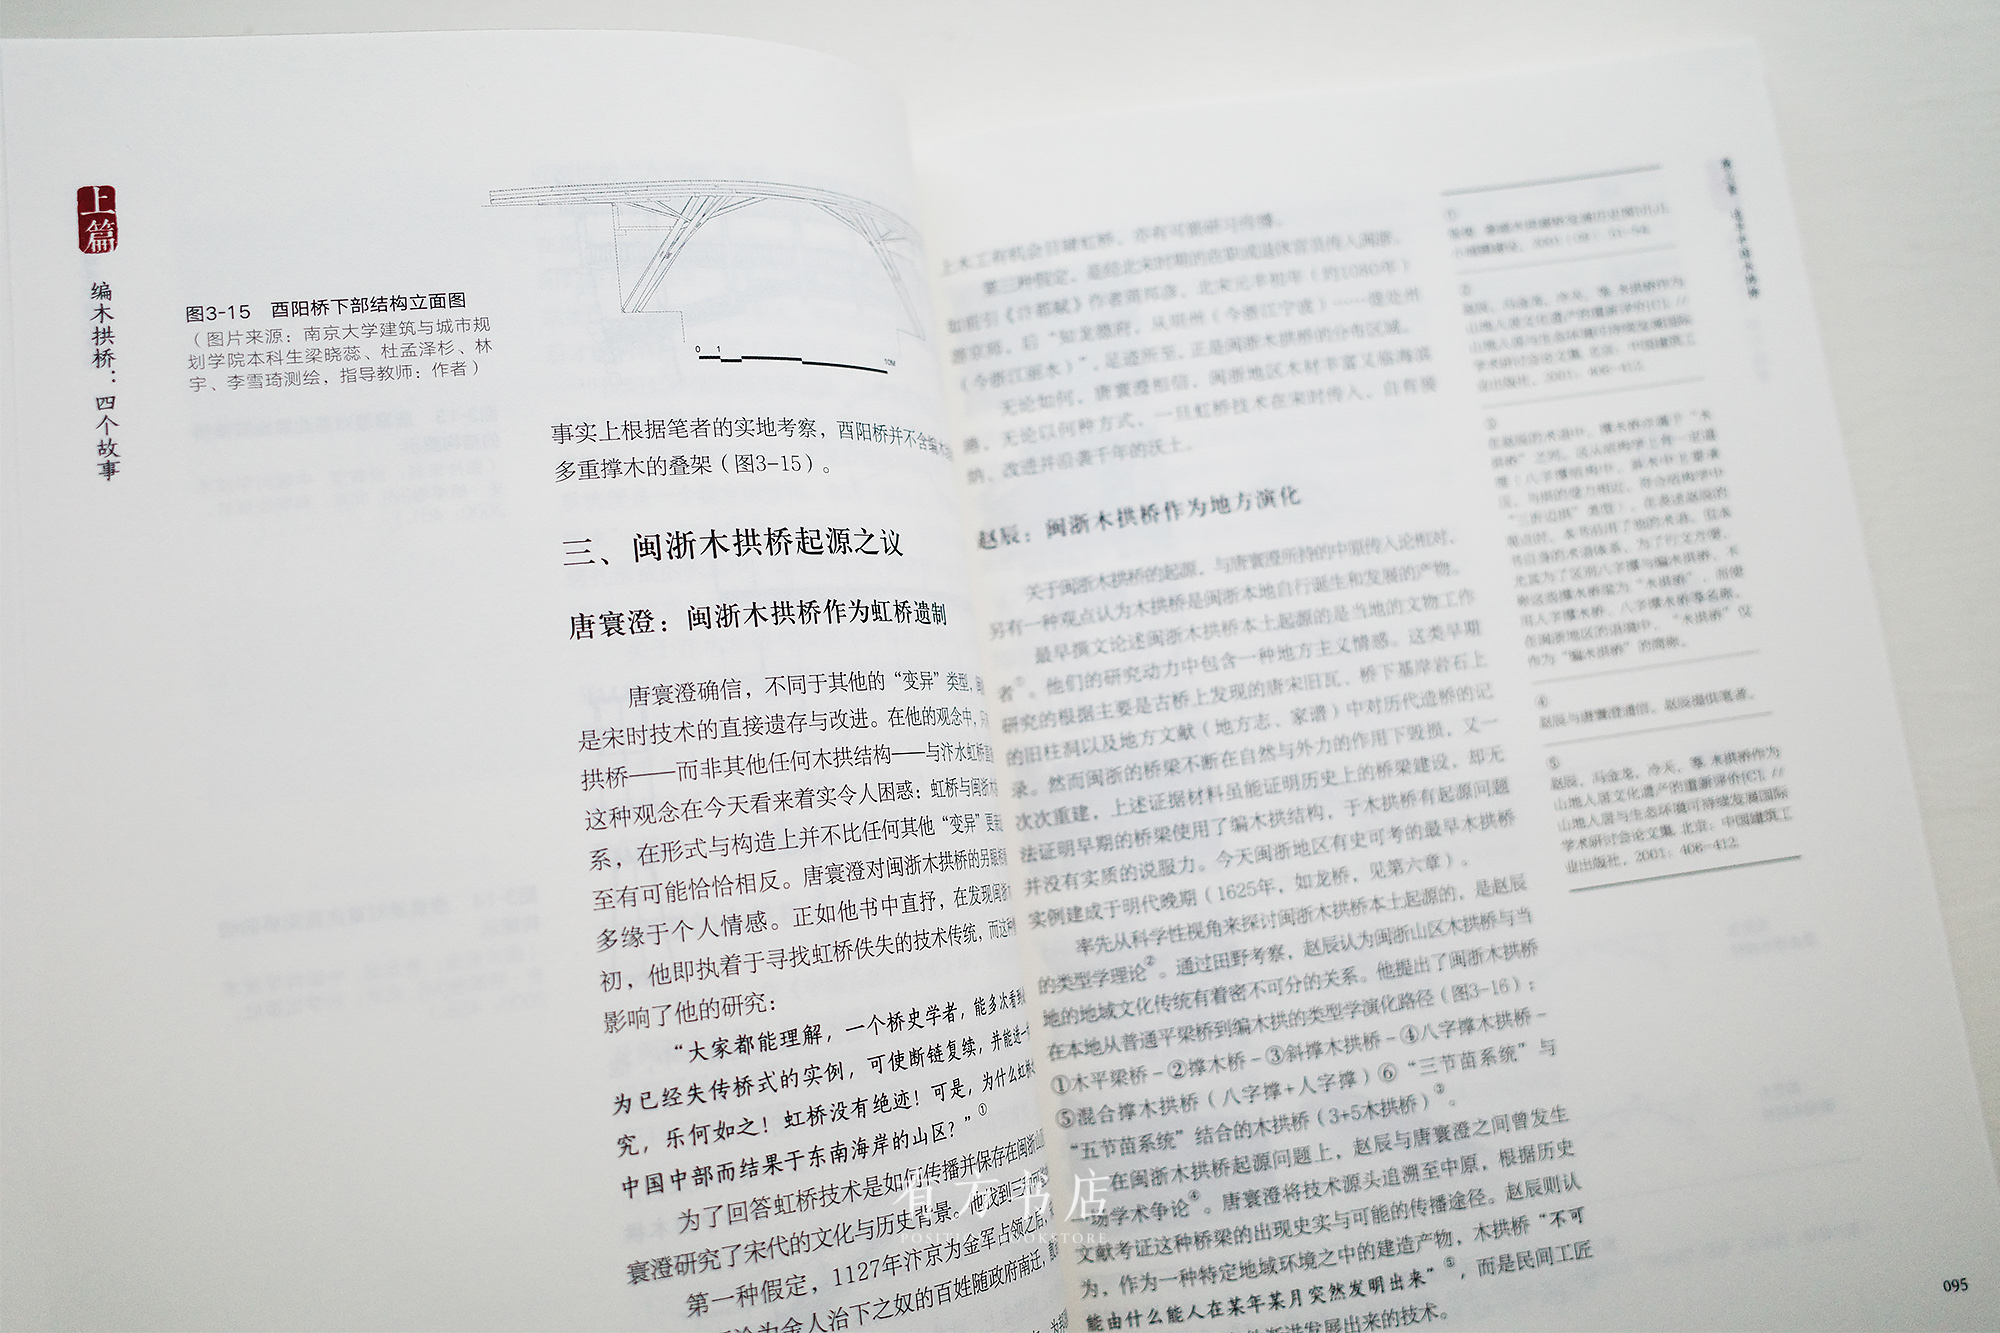 上篇
编木拱桥：四个故事
图3-15 酉阳桥下部结构立面图
（图片来源：南京大学建筑与城市规
划学院本科生梁晓蕊、杜孟泽杉、林
宇、李雪琦测绘，指导教师：作者）
0 1 10M
事实上根据笔者的实地考察，酉阳桥并不含编木
多重撑木的叠架（图3-15）。
三、闽浙木拱桥起源之议
唐寰澄：闽浙木拱桥作为虹桥遗制
唐寰澄确信，不同于其他的“变异”类型，
是宋时技术的直接遗存与改进。在他的观念中，只
拱桥——而非其他任何木拱结构——与汴水虹桥
这种观念在今天看来着实令人困惑：虹桥与闽浙木
系，在形式与构造上并不比任何其他“变异”更
至有可能恰恰相反。唐寰澄对闽浙木拱桥的另眼
多缘于个人情感。正如他书中直抒，在发现闽浙
初，他即执着于寻找虹桥佚失的技术传统，而这种
影响了他的研究：
“大家都能理解，一个桥史学者，能多次看到
为已经失传桥式的实例，可使断链复续，并能进一
究，乐何如之！虹桥没有绝迹！可是，为什么虹桥
中国中部而结果于东南海岸的山区？”①
为了回答虹桥技术是如何传播并保存在闽浙山
寰澄研究了宋代的文化与历史背景。他找到三种
第一种假定，1127年汴京为金军占领之后，
为金人治下之奴的百姓随政府南迁，
土木工有机会目睹虹桥，亦有可能研习传播。
第三种假定，是经北宋时期的在职或退休官员传入闽浙。
如前引《汴都赋》作者周邦彦，北宋元丰初年（约1080年）
游京师，后“知龙德府，从明州（今浙江宁波）……徙处州
（今浙江丽水）”，足迹所至，正是闽浙木拱桥的分布区域。
无论如何，唐寰澄相信，闽浙地区木材丰富又临海滨
无论以何种方式，一旦虹桥技术在宋时传入，自有接
纳、改进并沿袭千年的沃土。
赵辰：闽浙木拱桥作为地方演化
关于闽浙木拱桥的起源，与唐寰澄所持的中原传入论相对，
另有一种观点认为木拱桥是闽浙本地自行诞生和发展的产物。
最早撰文论述闽浙木拱桥本土起源的是当地的文物工作
者①。他们的研究动力中包含一种地方主义情感。这类早期
研究的根据主要是古桥上发现的唐宋旧瓦、桥下基岸岩石上
的旧柱洞以及地方文献（地方志、家谱）中对历代造桥的记
录。然而闽浙的桥梁不断在自然与外力的作用下毁损，又一
次次重建，上述证据材料虽能证明历史上的桥梁建设，却无
法证明早期的桥梁使用了编木拱结构，于木拱桥有起源问题
并没有实质的说服力。今天闽浙地区有史可考的最早木拱桥
实例建成于明代晚期（1625年，如龙桥，见第六章）。
率先从科学性视角来探讨闽浙木拱桥本土起源的，是赵辰
的类型学理论②。通过田野考察，赵辰认为闽浙山区木拱桥与当
地的地域文化传统有着密不可分的关系。他提出了闽浙木拱桥
在本地从普通平梁桥到编木拱的类型学演化路径（图3-16）：
①木平梁桥－②撑木桥－③斜撑木拱桥－④八字撑木拱桥－
⑤混合撑木拱桥（八字撑+人字撑）⑥“三节苗系统”与
“五节苗系统”结合的木拱桥（3+5木拱桥）③。
在闽浙木拱桥起源问题上，赵辰与唐寰澄之间曾发生
一场学术争论④。唐寰澄将技术源头追溯至中原，根据历史
文献考证这种桥梁的出现史实与可能的传播途径。赵辰则认
为，作为一种特定地域环境之中的建造产物，木拱桥“不可
能由什么能人在某年某月突然发明出来”⑤，而是民间工匠
发展出来的技术。
②
赵辰，冯金龙，冷天，等.木拱桥作为
山地人居文化遗产的重新评价[C].//
山地人居与生态环境可持续发展国际
学术研讨会论文集.北京：中国建筑工
业出版社，2001：406-412.
③
④
赵辰与唐寰澄通信，赵辰提供笔者。
⑤
赵辰，冯金龙，冷天，等.木拱桥作为
山地人居文化遗产的重新评价[C].//
山地人居与生态环境可持续发展国际
学术研讨会论文集.北京：中国建筑工
业出版社，2001：406-412.
095
有方书店
POSITION BOOKSTORE